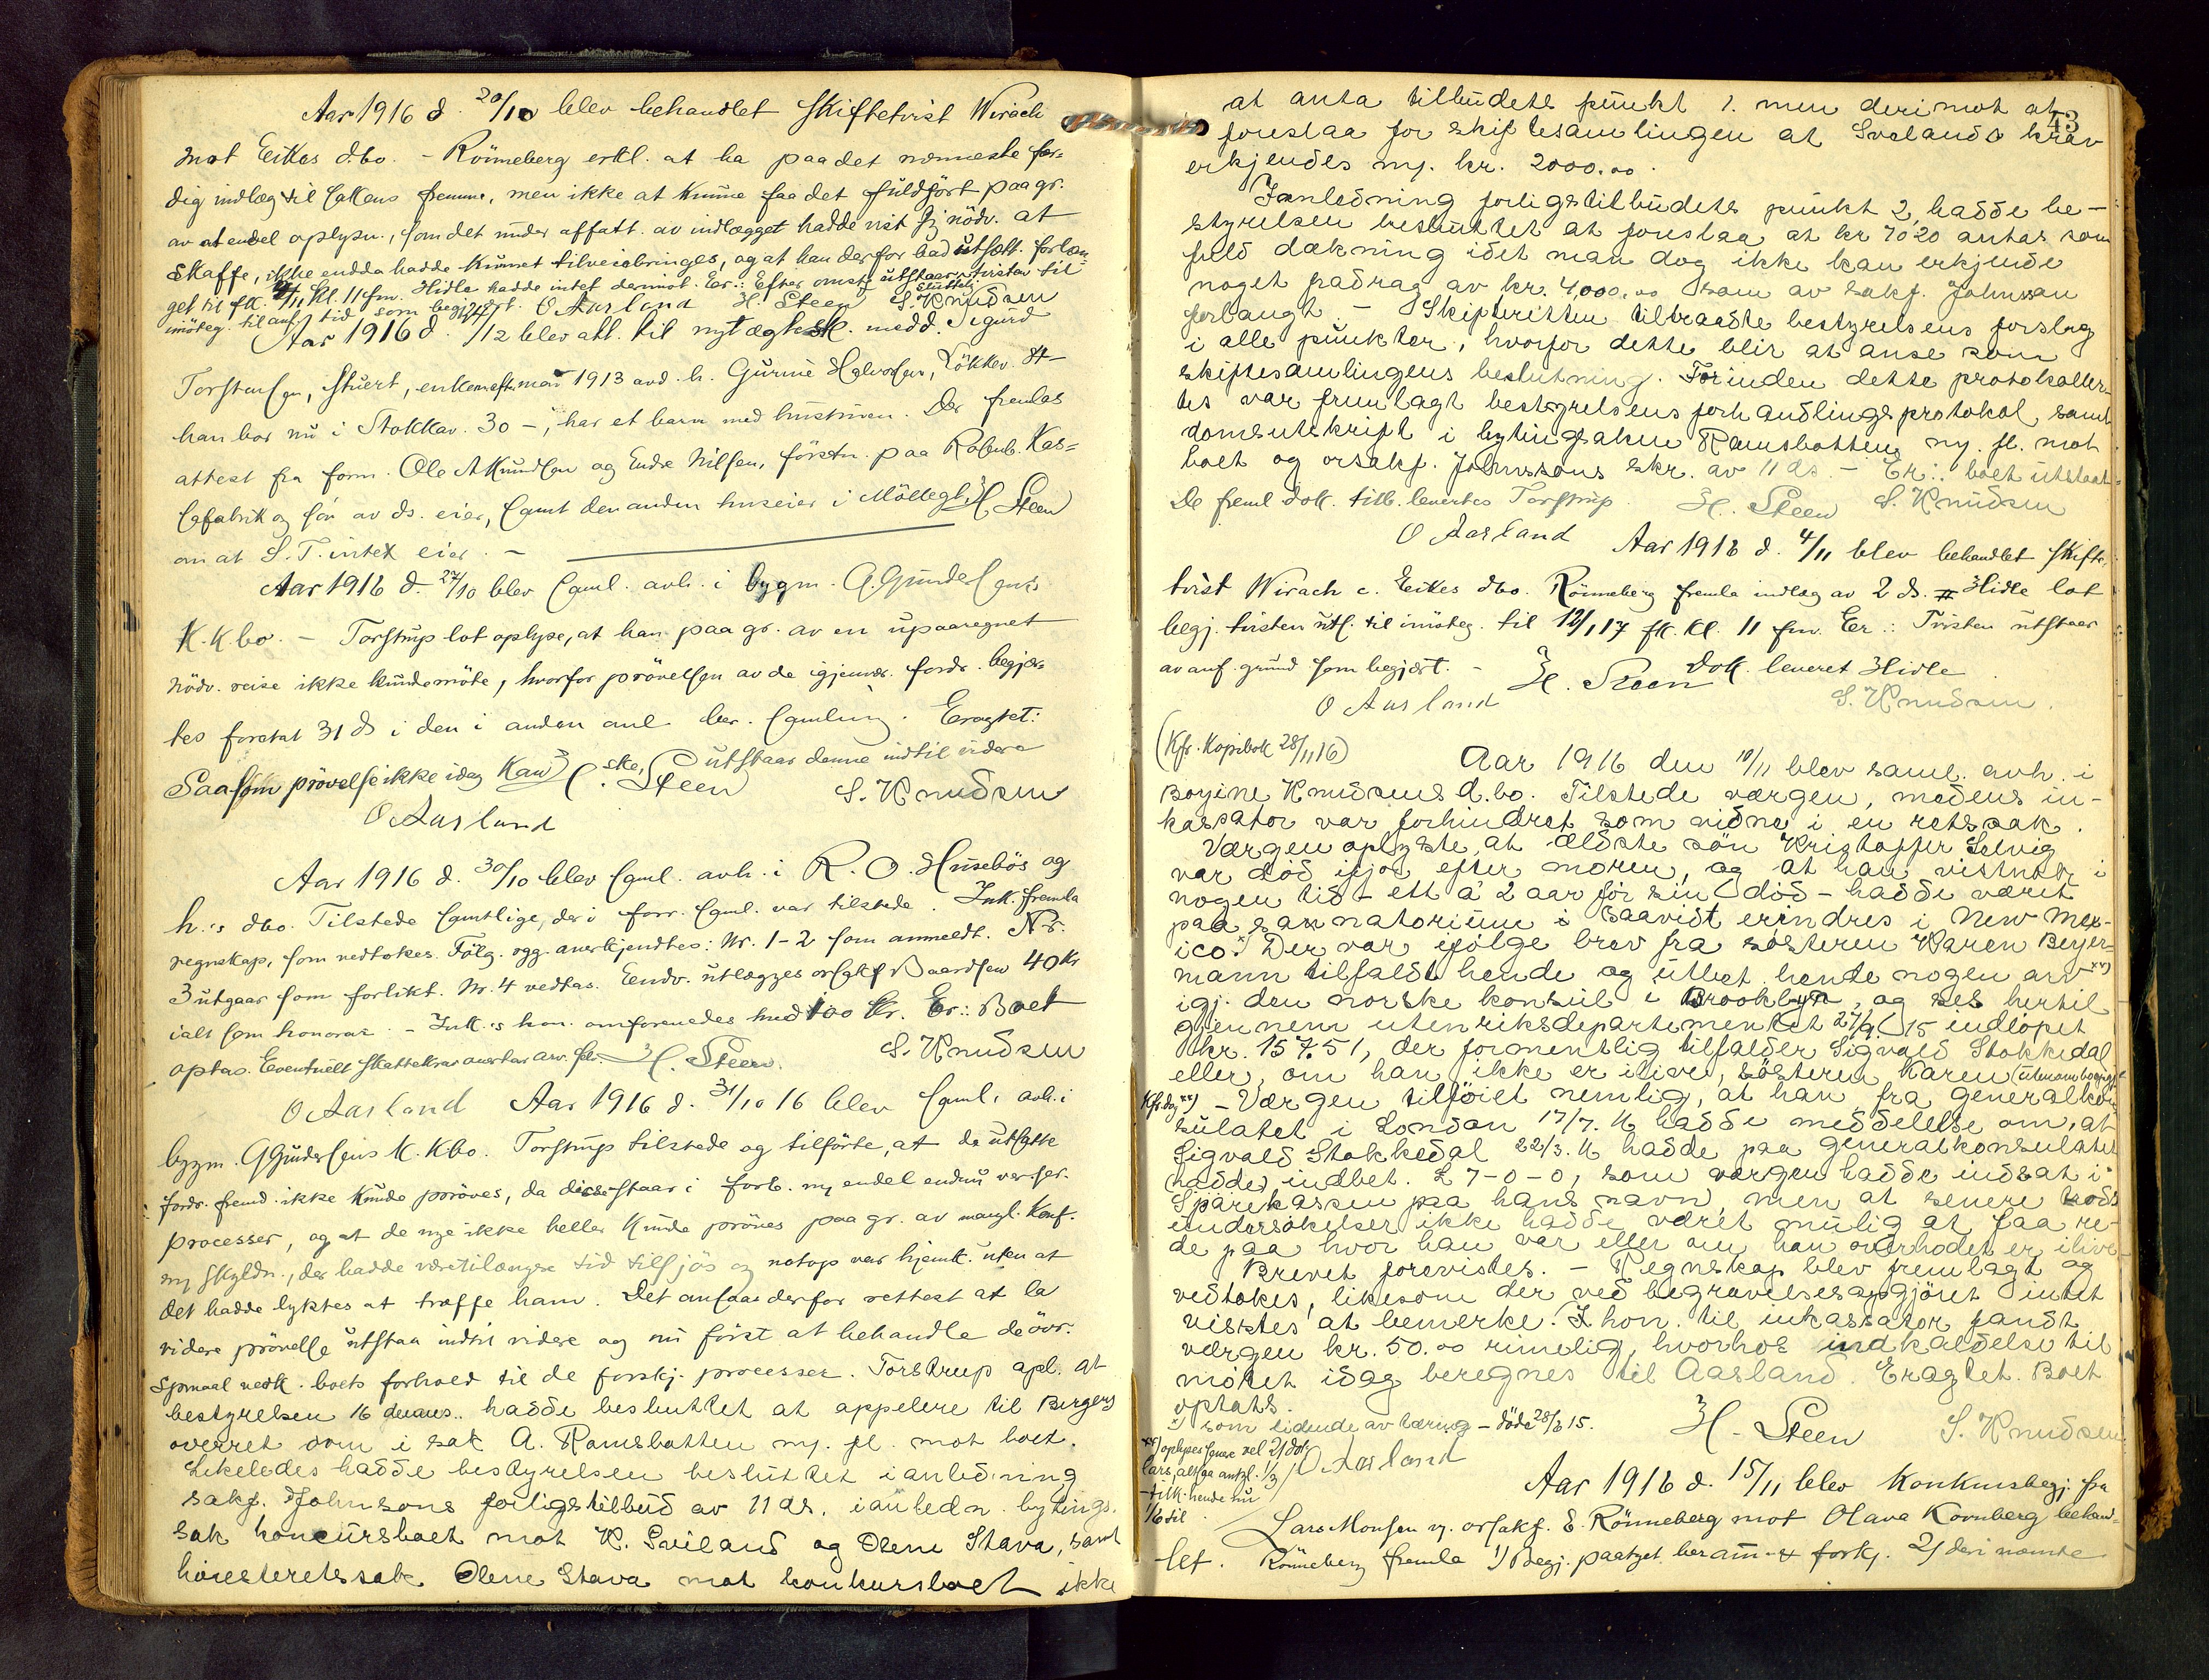 Aar 1916 d. 20/10 blev behandlet skiftetvist Wirach
mot Eikes dbo. - Rönneberg erkl. at ha paa det nærmeste fær-
dig indlæg til sakens fremme, men ikke at kunne faa det fuldfört paa gr.
av at endel oplysn., som det under affatt. av indlægget hadde vist sig nödv. at
skaffe, ikke endda hadde kunnet tilveiebringes, og at han derfor bad utsætt. forlæn
get til fk. 4/11 kl. 11 fm. Hidle hadde intet derimot. Er.: Efter omst. utstaar tvisten til
imöteg. til anf. tid som begjært. O Aasland H. Steen S. Knudsen
Aar 1916 d. /12 blev att. til nyt ægtesk. medd. Sigurd
Torstensen, stuert, enkem. efter 1913 avd. h. Gurine Halvorsen, Lökkev.
han bor nu i Stokkav. 30 -, har et barn med hustruen. Der fremlas
attest fra form. Ole A Knudsen og Endre Nilsen, förstn. paa Rosenb. Kas-
sefabrik og sön av ds. eier, samt den anden huseier i Möllegt. H. Steen
om at S. T. intet eier. -
Aar 1916 d. 27/10 blev saml. avh. i bygm. G. Gundersens
K.k.bo. - Torstrup lot oplyse, at han paa gr. av en upaaregnet
nödv. reise ikke kunde möte, hvorfor prövelsen av de igjenvær. fordr. begjær-
tes foretat 31 ds i den i anden anl. ber. samling. Eragtet:
Saasom prövelse ikke idag kan ske, utstaar denne indtil videre
H. Steen S. Knudsen
O Aasland
Aar 1916 d. 30/10 blev saml. avh. i R. O. Husebös og
h.'s dbo. Tilstede samtlige, der i forr. saml. var tilstede. Ink. fremla
regnskap, som vedtokes. Fölg. ogg. anerkjendtes: Nr. 1-2 som anmeldt. Nr.
3 utgaar som forlikt. Nr. 4 vedtas. Eendv. utlægges orsakf Baardsen 40 kr
ialt som honorar. - Ink.'s hon. omforenedes med 100 kr. Er.: Boet
optas. Eventuelt skattekrav H. Steen. S. Knudsen
O Aasland Aar 1916 d. 31/10 16 blev saml. avh. i
bygm. G Gundersens K.kbo. Torstrup tilstede og tilförte, at de utsatte
fordr. fremd. ikke kunde pröves, da disse staar i forb. m endel endnu versér.
processer, og at de nye ikke heller kunde pröves paa gr. av mangl. konf.
m skyldn., der hadde været længere tid tilsjös og netop var hjemk. uten at
det hadde lyktes at træffe ham. Det ansaas derfor rettest at la
videre prövelse utstaa indtil videre og nu först at behandle de övr.
spmaal vedk. boets forhold til de forskj. processer. Torstrup opl. at
bestyrelsen 16 dennes.. hadde besluttet at appelere til Bergens
overret dom i sak A. Ramsbotten m. fl. mot boet.
Likeledes hadde bestyrelsen besluttet i anledning
sakf. Johnsons forligstilbud av 11 ds. i anledn. bytings-
sak koncursboet mot K. Sviland og Olene Stava, samt
höiesteretssak Olene Stava mot konkursboet ikke
43
at anta tilbudets punkt 1. men derimot at
foreslaa for skiftesamlingen at Svelands krav
erkjendes m. kr. 2000.00.
I anledning forligstilbudets punkt 2, hadde be-
styrelsen besluttet at foreslaa at kr 7020 antas som
fuld dækning idet man dog ikke kan erkjende
noget fradrag av kr. 4,000.00 som av sakf. Johnson
forlangt. - Skifteretten tiltraadte bestyrelsens forslag
i alle punkter, hvorfor dette blir at anse som
skiftesamlingens beslutning. Forinden dette protokoller-
tes var fremlagt bestyrelsens forhandlingsprotokol, samt
domsutskrift i bytingsaken Ramsbotten m. fl. mot
boet og orsakf. Johnssons skr. av 11 ds. - Er.: boet utstaar.
De freml dok. tilb. levertes Torstrup. H. Steen S. Knudsen
O Aasland Aar 1916 d. 4/11 blev behandlet skifte-
tvist Wirach c. Eikes dbo. Rönneberg fremla indlæg av 2 ds. Hidle lot
begj. tvisten uts. til imöteg. til 12/1 17 fk. kl. 11 fm. Er.: Tvisten utstaar
av anf. grund som begjært. - H. Steen Dok. leveret Hidle
O Aasland S. Knudsen.
(Kfr. Kopibok 28/11 16) Aar 1916 den 10/11 blev saml. avh. i
Boyine Knudsens d.bo. Tilstede værgen, medens in-
kassator var forhindret som vidne i en retssak.
Værgen oplyste, at ældste sön Kristoffer Selvig
var död ifjor efter moren, og at han vistnok i
nogen tid - ett à 2 aar för sin död - hadde været
paa sanatorium i saavidt erindres i New Mex-
ico.x) Der var ifölge brev fra sösteren Karen Beyer-
mann tilfaldt hende og utbet. hende nogen arv xx)
igj. den norske konsul i Brooklyn, og ses hertil
gjennem utenriksdepartementet 27/9 15 indlöpet
kr. 157.51, der formentlig tilfalder Sigvald Stokkedal
eller, om han ikke er ilive, sösteren Karen
Kfr. dog xx) - Værgen tilföiet nemlig, at han fra generalkon-
sulatet i London 17/7. 14 hadde meddelelse om, at
Sigvald Stokkedal 22/3. 14 hadde paa generalkonsulatet
(hadde) indbet. £ 7-0-0, som værgen hadde indsat i
Sparekassen paa hans navn, men at senere trods
undersökelser ikke hadde været mulig at faa re-
de paa hvor han var eller om han overhodet er ilive.
Brevet forevistes. - Regnskap blev fremlagt og
vedtokes, likesom der ved begravelsesopgjöret intet
visstes at bemerke. I hon. til inkassator fandt
værgen kr. 50.00 rimelig, hvorhos indkaldelse til
mötet idag beregnes til Aasland. Eragtet. Boet
optats.
x) som lidende av tæring - döde 28/3 15. H. Steen S. Knudsen
xx) oplyses senere vel 21 dol-
lars, altsaa antgl. 1/3 O Aasland
- tilk. hende nu
1/6 til
Aar 1916 d. 15/11 blev konkursbegj. fra
Lars Monsen v. orsakf. E. Rönneberg mot Olava Kornberg behand-
let. Rönneberg fremla 1) Begj. paategt. beram- & forkj. 2) deri nævnte